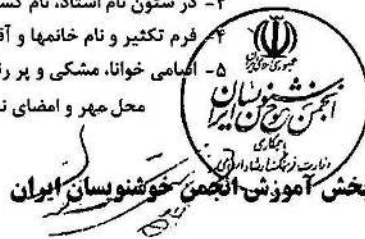 ۳- در ستون نام استاد، نام کس
۴- فرم تکثیر و نام خانمها و آق
۵- اسامی خوانا، مشکی و پر رن
محل مهر و امضای ن
جمهوری اسلامی ایران
انجمن خوشنویسان ایران
با همکاری
وزارت فرهنگ و ارشاد اسلامی
بخش آموزش انجمن خوشنویسان ایران